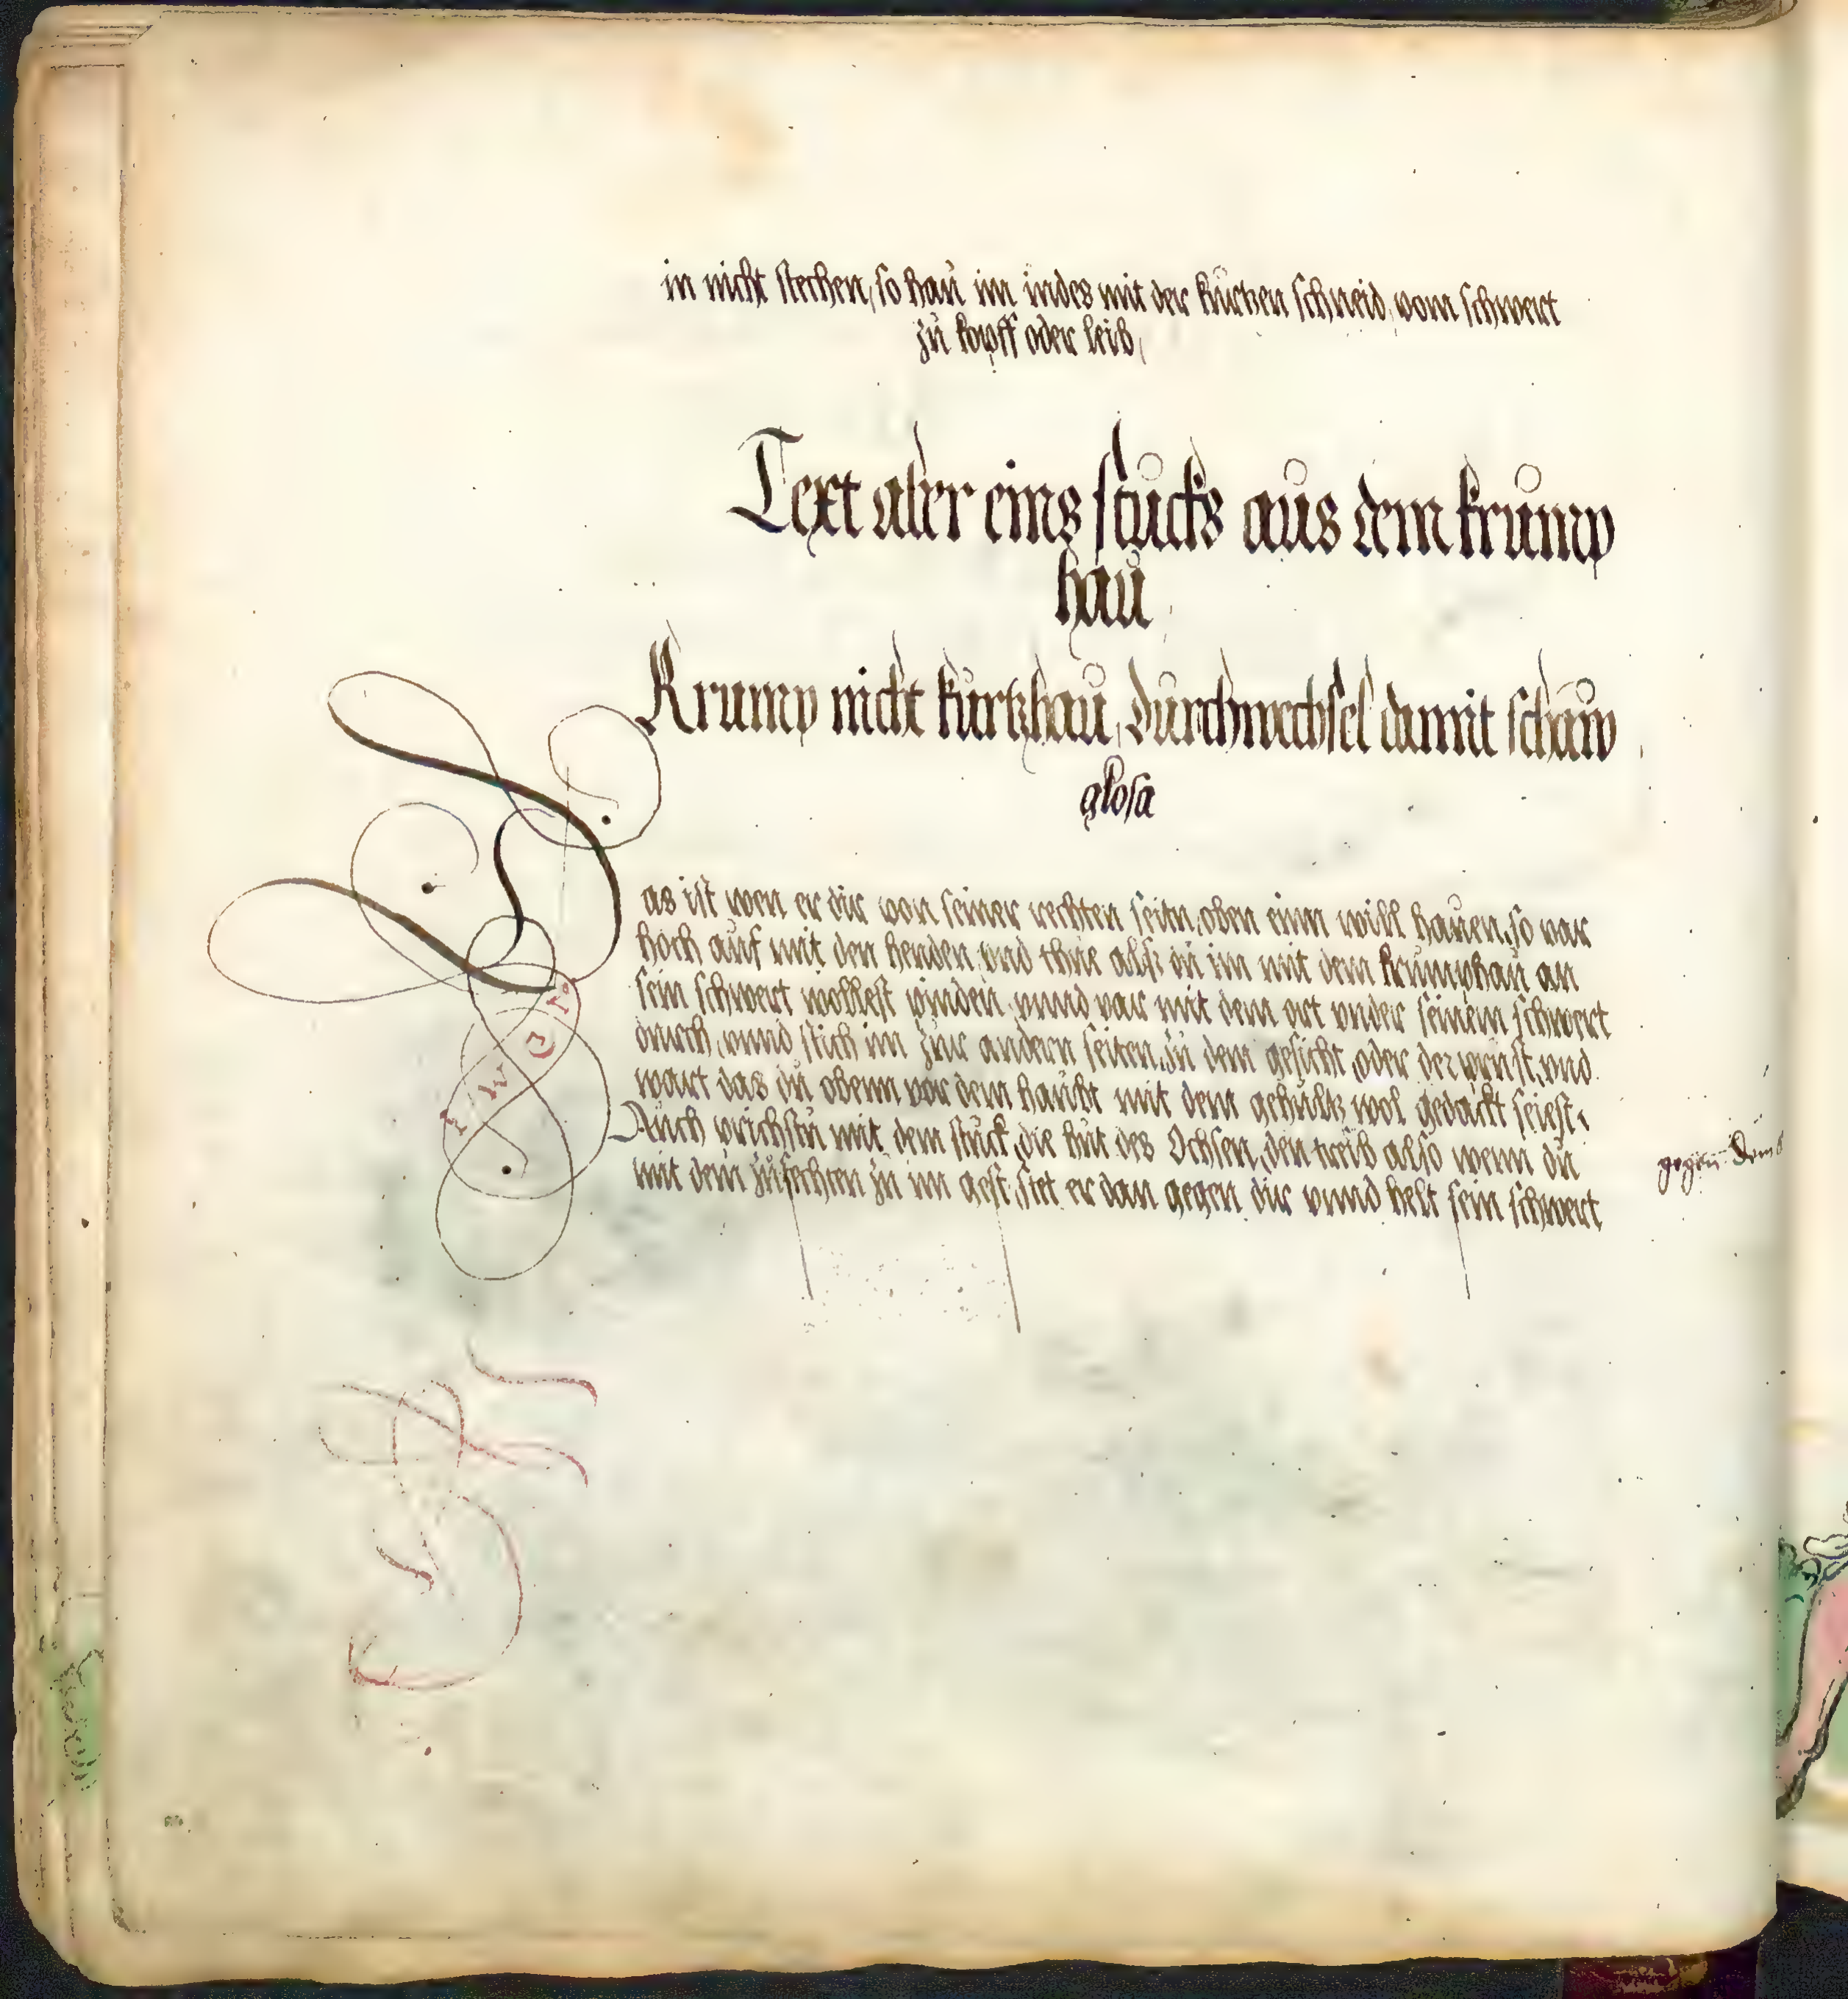 in nicht stechen, so hau im indes mit der kurtzen schneid, vom schwert
zu kopff oder leib,
Text aber eins stucks aus dem krump
hau
Krump nicht kurtzhau, durchwechsel damit schaw
glosa
Das ist wen er dir von seiner rechten seitn, oben einn will hauen, so var
hoch auf mit den henden, vnd thue alls du im mit dem krumphau an
sein schwert wollest pinden, vnnd var mit dem ort vnder seinem schwert
durch, vnnd stich im zur andern seiten, zu dem gesicht, oder der prust, vnd
wart das du obenn vor dem haubt mit dem gehultz wol gedackt seiest,
Auch prichstu mit dem stuck, die hut des Ochsen, den treib also wenn du
mit dem zufechten zu im gest, stet er dan gegen dir vnnd helt sein schwert
gegen